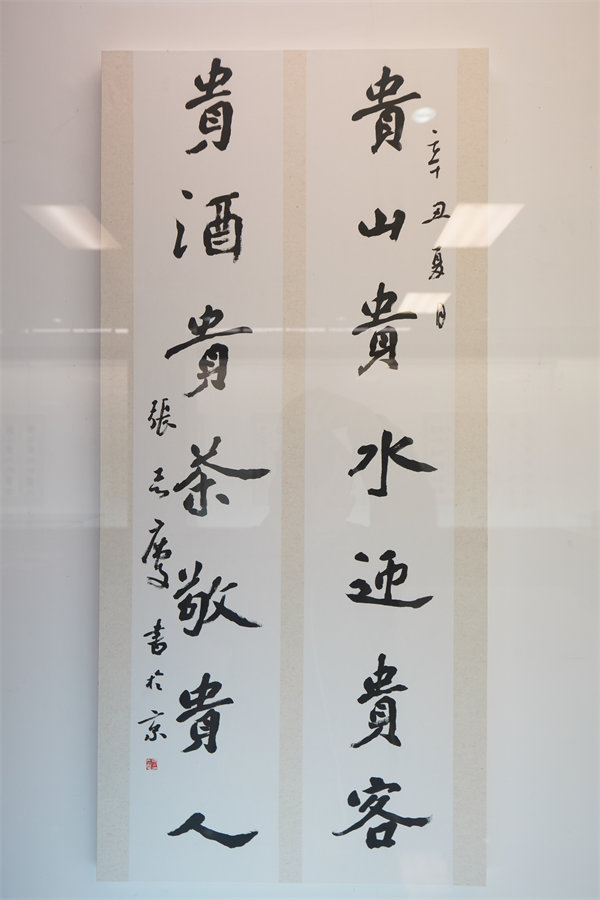 辛丑夏日
貴山貴水迎貴客
貴酒貴茶敬貴人
張志慶書於京